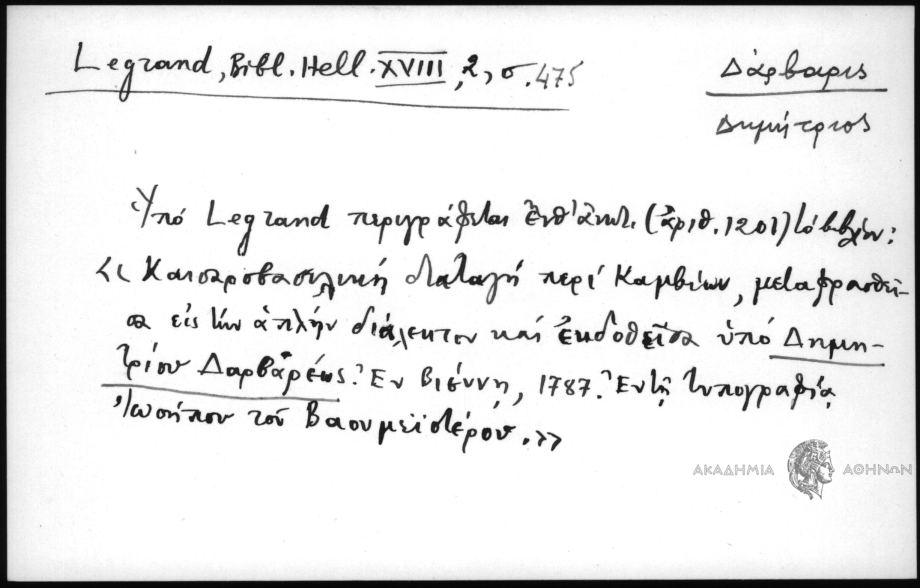 Legrand, Bibl. Hell. XVIII, 2, σ. 475
Δάρβαρις
Δημήτριος
Ὑπό Legrand περιγράφεται ἐνθ' ἀνωτ. (ἀριθ. 1201) τό βιβλίον:
<< Καισαροβασιλική διαταγή περί Καμβίων, μεταφρασθεῖ-
σα εἰς τήν ἁπλήν διάλεκτον καί ἐκδοθεῖσα ὑπό Δημη-
τρίου Δαρβάρεως. Ἐν Βιέννῃ, 1787. Ἐν τῇ τυπογραφίᾳ
Ἰωσήπου τοῦ Βαουμεϊστέρου. >>
ΑΚΑΔΗΜΙΑ ΑΘΗΝΩΝ